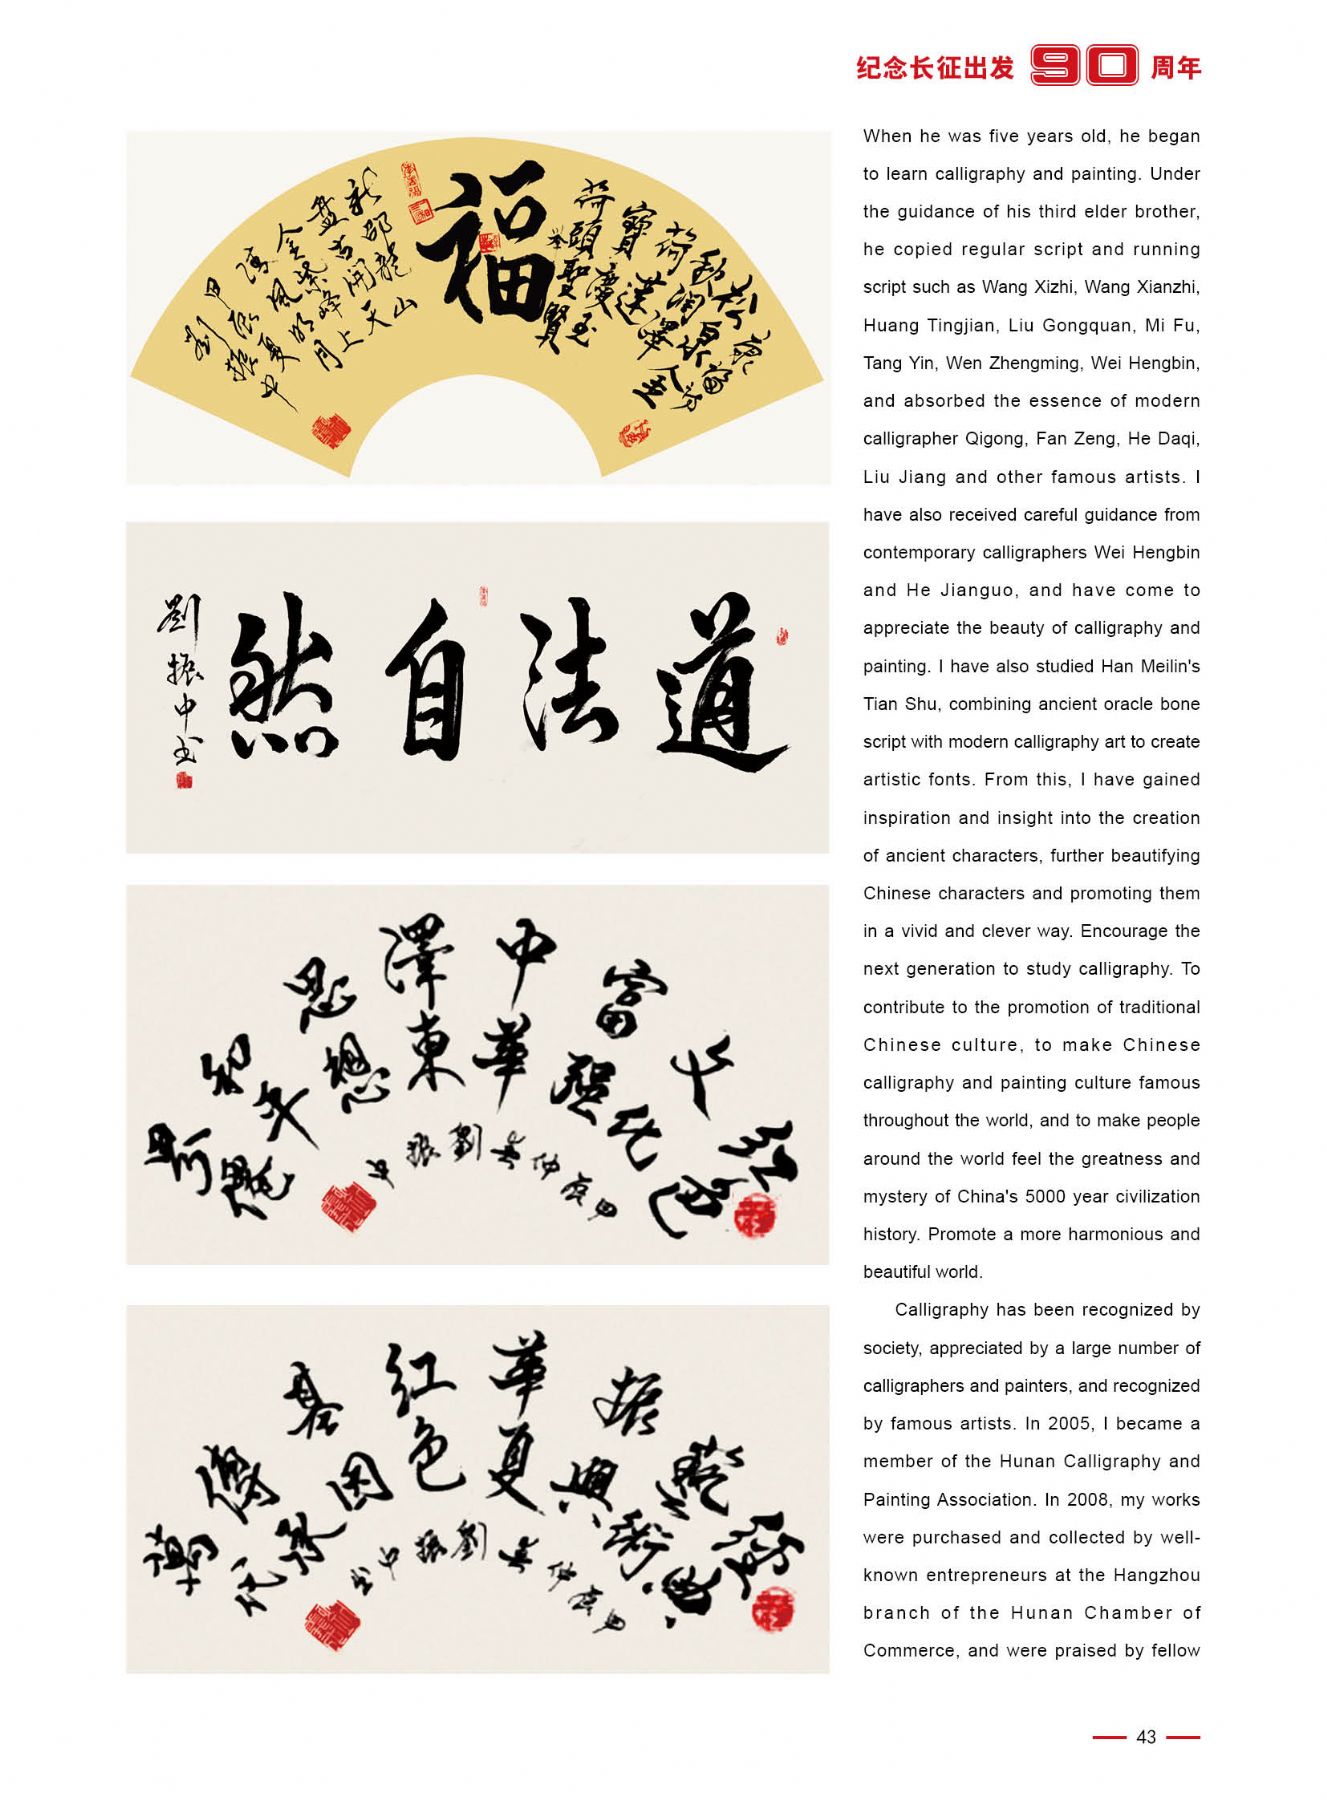 纪念长征出发90周年
福
道法自然
劉振中书
中華
澤東
思想
富强
千
红色
劉振中
華夏
红色
基因
振興
傳承
劉振中书
When he was five years old, he began
to learn calligraphy and painting. Under
the guidance of his third elder brother,
he copied regular script and running
script such as Wang Xizhi, Wang Xianzhi,
Huang Tingjian, Liu Gongquan, Mi Fu,
Tang Yin, Wen Zhengming, Wei Hengbin,
and absorbed the essence of modern
calligrapher Qigong, Fan Zeng, He Daqi,
Liu Jiang and other famous artists. I
have also received careful guidance from
contemporary calligraphers Wei Hengbin
and He Jianguo, and have come to
appreciate the beauty of calligraphy and
painting. I have also studied Han Meilin's
Tian Shu, combining ancient oracle bone
script with modern calligraphy art to create
artistic fonts. From this, I have gained
inspiration and insight into the creation
of ancient characters, further beautifying
Chinese characters and promoting them
in a vivid and clever way. Encourage the
next generation to study calligraphy. To
contribute to the promotion of traditional
Chinese culture, to make Chinese
calligraphy and painting culture famous
throughout the world, and to make people
around the world feel the greatness and
mystery of China's 5000 year civilization
history. Promote a more harmonious and
beautiful world.
Calligraphy has been recognized by
society, appreciated by a large number of
calligraphers and painters, and recognized
by famous artists. In 2005, I became a
member of the Hunan Calligraphy and
Painting Association. In 2008, my works
were purchased and collected by well-
known entrepreneurs at the Hangzhou
branch of the Hunan Chamber of
Commerce, and were praised by fellow
43